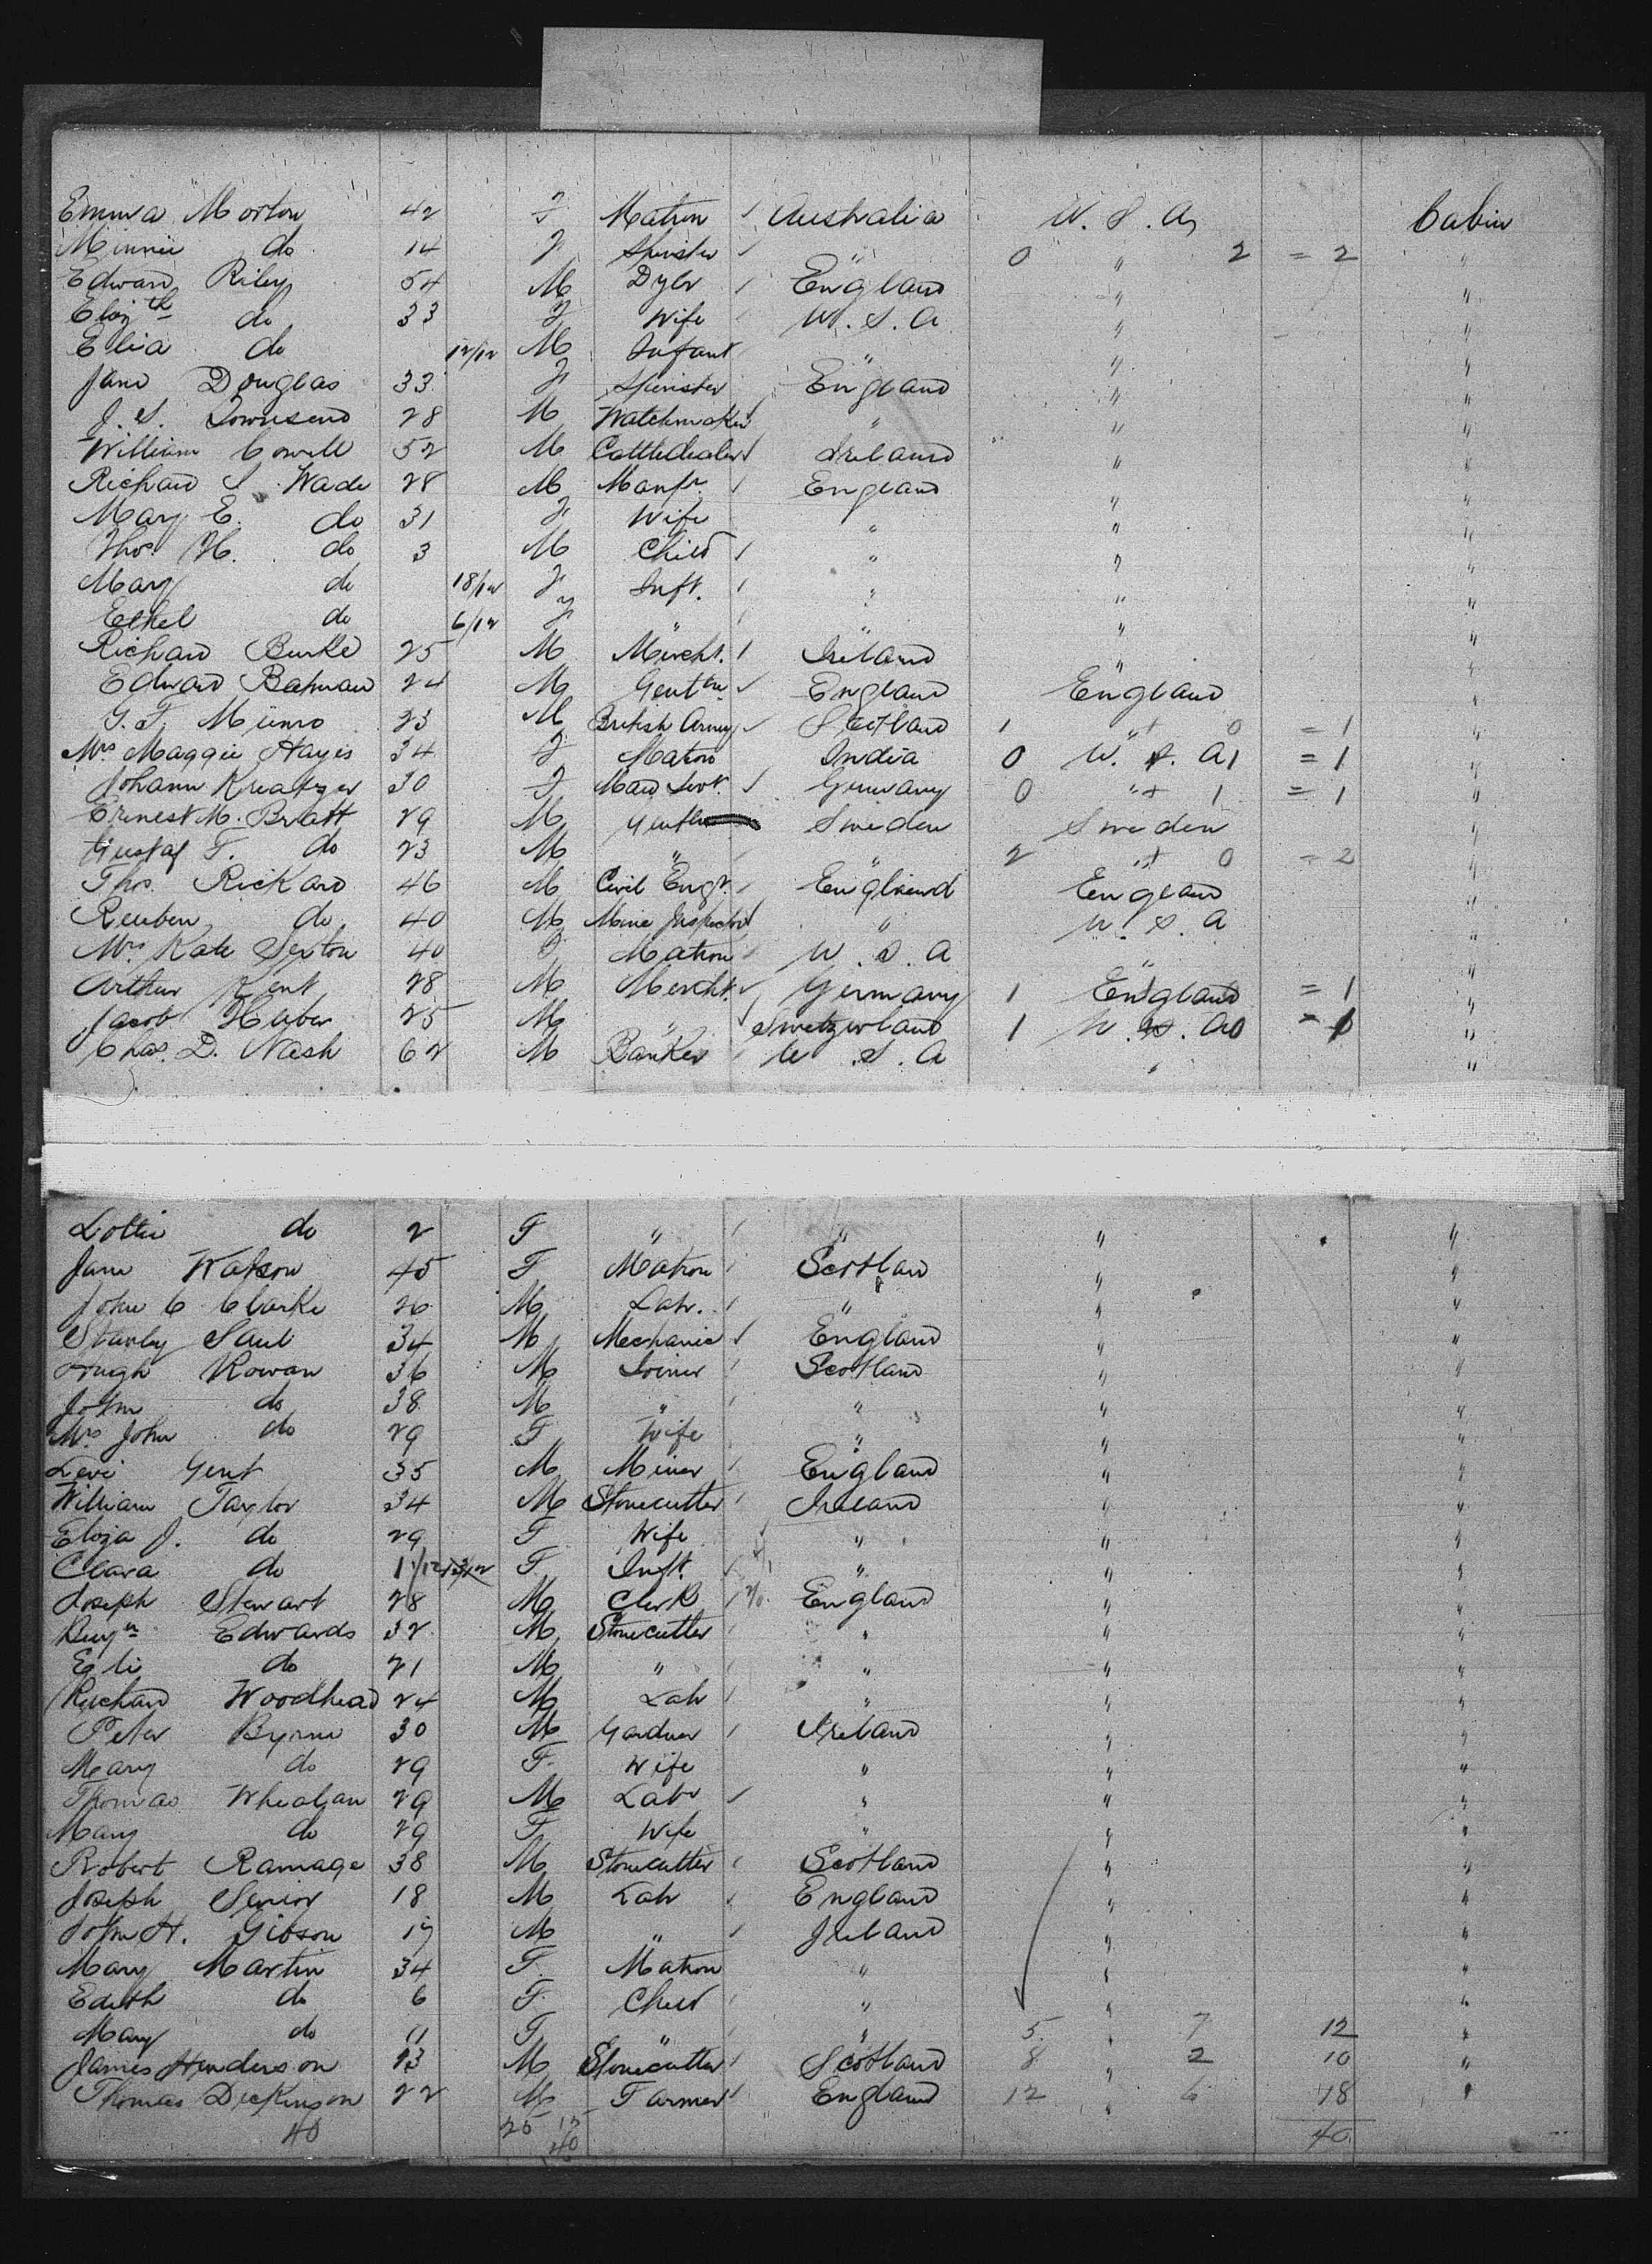 Emma Morton 42 F Matron / Australia U.S.A. Cabin
Minnie do 14 F Spinster / " 0 " 2 = 2 "
Edward Riley 54 M Dyer / England " "
Eliz th do 33 F Wife U.S.A " "
do 12/12 M Infant " " "
Jane Douglas 33 F Spinster England " "
J. S. Townsend 28 M Watchmaker / " " "
William Cowell 52 M Cattledealer / Ireland " "
Richard S Wade 28 M Manfr. / England " "
Mary E. do 31 F Wife " " "
Thos. H. do 3 M Child / " " "
Mary do 18/12 F Inft. / " " "
Ethel do 6/12 F " / " " "
Richard Burke 25 M Mercht. / Ireland " "
Edward Batman 24 M Gentm / England England "
G. F. Munro 23 M British Army / Scotland 1 "+ 0 = 1 "
Mrs Maggie Hayes 34 F Matron India 0 U.S.A 1 = 1 "
Johann Kreatzer 30 F Maid Servt. / Germany 0 "+ 1 = 1 "
Ernest M. Bratt 29 M Gentm Sweden Sweden "
Gustaf F. do 23 M " " 2 "+ 0 = 2 "
Thos. Rickard 46 M Civil Engr. / England England "
Reuben do 40 M Mine Inspector / " U.S.A "
Mrs Kate Sexton 40 F Matron U.S.A " "
Arthur Kent 28 M Mercht. / Germany 1 England = 1 "
Jacob Huber 25 M " / Switzerland 1 U.S.A 0 = 1 "
Chas. D. Nash 62 M Banker / U.S.A " "
Lottie do 2 F " / " " "
Jane Watson 45 F Matron / Scotland " "
John C Clarke 26 M Labr. / " " "
Stanly Saul 34 M Mechanic / England " "
Hugh Rowan 36 M Joiner / Scotland " "
John do 38 M " / " " "
Mrs John do 29 F Wife " " "
Levi Gent 35 M Miner / England " "
William Taylor 34 M Stonecutter / Ireland " "
Eliza J. do 29 F Wife " " "
Clara do 11/12 F Inft. / " " "
Joseph Stewart 28 M Clerk / England " "
Benjn Edwards 32 M Stonecutter / " " "
do 21 M " / " " "
Richard Woodhead 24 M Labr / " " "
Peter Byrne 30 M Gardner / Ireland " "
Mary do 29 F Wife " " "
Thomas Whealan 29 M Labr / " " "
Mary do 29 F Wife " " "
Robert Ramage 38 M Stonecutter / Scotland " "
Joseph Senior 18 M Labr / England " "
John H. Gibson 19 M " / Ireland " "
Mary Martin 34 F Matron " " "
Edith do 6 F Child / " " "
Mary do 11 F " / " 5 " 7 12 "
James Henderson 23 M Stonecutter / Scotland 8 " 2 10 "
Thomas Dickinson 22 M Farmer / England 12 " 6 18 "
40 25 15 40 40